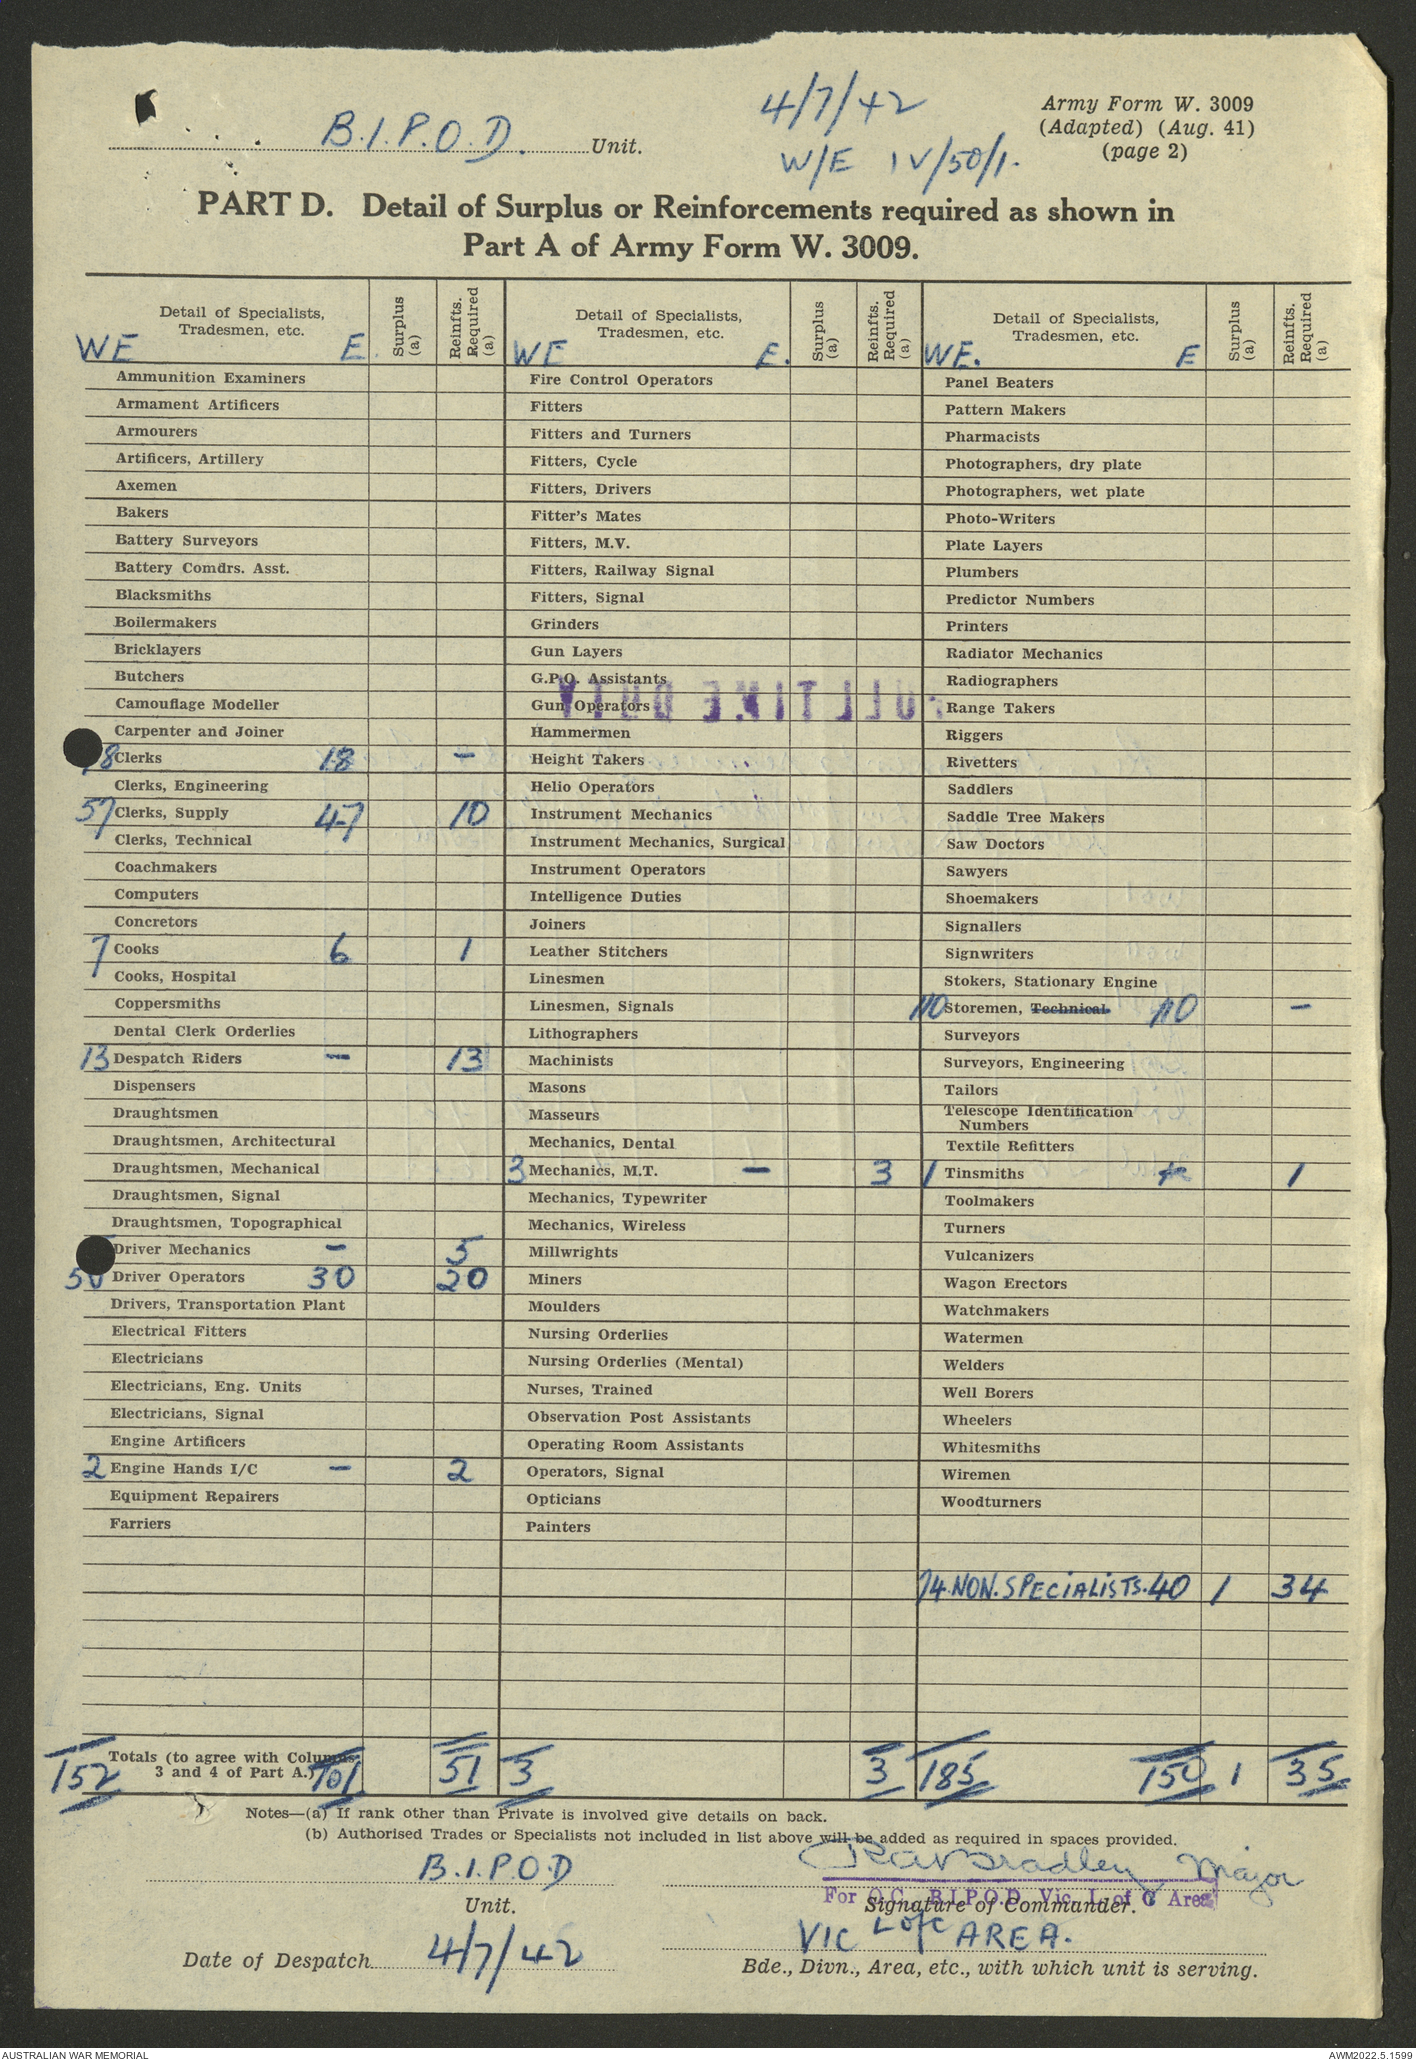 4/7/42
Army Form W. 3009
(Adapted) (Aug. 41)
(page 2)
B.I.P.O.D. Unit.
W/E IV/50/1.
PART D. Detail of Surplus or Reinforcements required as shown in
Part A of Army Form W. 3009.
Detail of Specialists, Tradesmen, etc. Surplus (a) Reinfts. Required (a) Detail of Specialists, Tradesmen, etc. Surplus (a) Reinfts. Required (a) Detail of Specialists, Tradesmen, etc. Surplus (a) Reinfts. Required (a)
WE E. WE E. WE. E
Ammunition Examiners Fire Control Operators Panel Beaters
Armament Artificers Fitters Pattern Makers
Armourers Fitters and Turners Pharmacists
Artificers, Artillery Fitters, Cycle Photographers, dry plate
Axemen Fitters, Drivers Photographers, wet plate
Bakers Fitter's Mates Photo-Writers
Battery Surveyors Fitters, M.V. Plate Layers
Battery Comdrs. Asst. Fitters, Railway Signal Plumbers
Blacksmiths Fitters, Signal Predictor Numbers
Boilermakers Grinders Printers
Bricklayers Gun Layers Radiator Mechanics
Butchers G.P.O. Assistants Radiographers
FULL TIME DUTY
Camouflage Modeller Gun Operators Range Takers
Carpenter and Joiner Hammermen Riggers
18 Clerks 18 - Height Takers Rivetters
Clerks, Engineering Helio Operators Saddlers
57 Clerks, Supply 47 10 Instrument Mechanics Saddle Tree Makers
Clerks, Technical Instrument Mechanics, Surgical Saw Doctors
Coachmakers Instrument Operators Sawyers
Computers Intelligence Duties Shoemakers
Concretors Joiners Signallers
7 Cooks 6 1 Leather Stitchers Signwriters
Cooks, Hospital Linesmen Stokers, Stationary Engine
Coppersmiths Linesmen, Signals 110 Storemen, Technical 110 -
Dental Clerk Orderlies Lithographers Surveyors
13 Despatch Riders - 13 Machinists Surveyors, Engineering
Dispensers Masons Tailors
Draughtsmen Masseurs Telescope Identification Numbers
Draughtsmen, Architectural Mechanics, Dental Textile Refitters
Draughtsmen, Mechanical 3 Mechanics, M.T. - 3 1 Tinsmiths 1
Draughtsmen, Signal Mechanics, Typewriter Toolmakers
Draughtsmen, Topographical Mechanics, Wireless Turners
Driver Mechanics - 5 Millwrights Vulcanizers
50 Driver Operators 30 20 Miners Wagon Erectors
Drivers, Transportation Plant Moulders Watchmakers
Electrical Fitters Nursing Orderlies Watermen
Electricians Nursing Orderlies (Mental) Welders
Electricians, Eng. Units Nurses, Trained Well Borers
Electricians, Signal Observation Post Assistants Wheelers
Engine Artificers Operating Room Assistants Whitesmiths
2 Engine Hands I/C - 2 Operators, Signal Wiremen
Equipment Repairers Opticians Woodturners
Farriers Painters
74 NON. SPECIALISTS. 40 1 34
152 Totals (to agree with Columns 3 and 4 of Part A.) 101 51 3 3 185 150 1 35
Notes—(a) If rank other than Private is involved give details on back.
(b) Authorised Trades or Specialists not included in list above will be added as required in spaces provided.
B.I.P.O.D Bradley Major
For O.C. B.I.P.O.D. Vic. L of C Area
Unit. Signature of Commander.
VIC L of C AREA.
Date of Despatch 4/7/42
Bde., Divn., Area, etc., with which unit is serving.
AUSTRALIAN WAR MEMORIAL AWM2022.5.1599